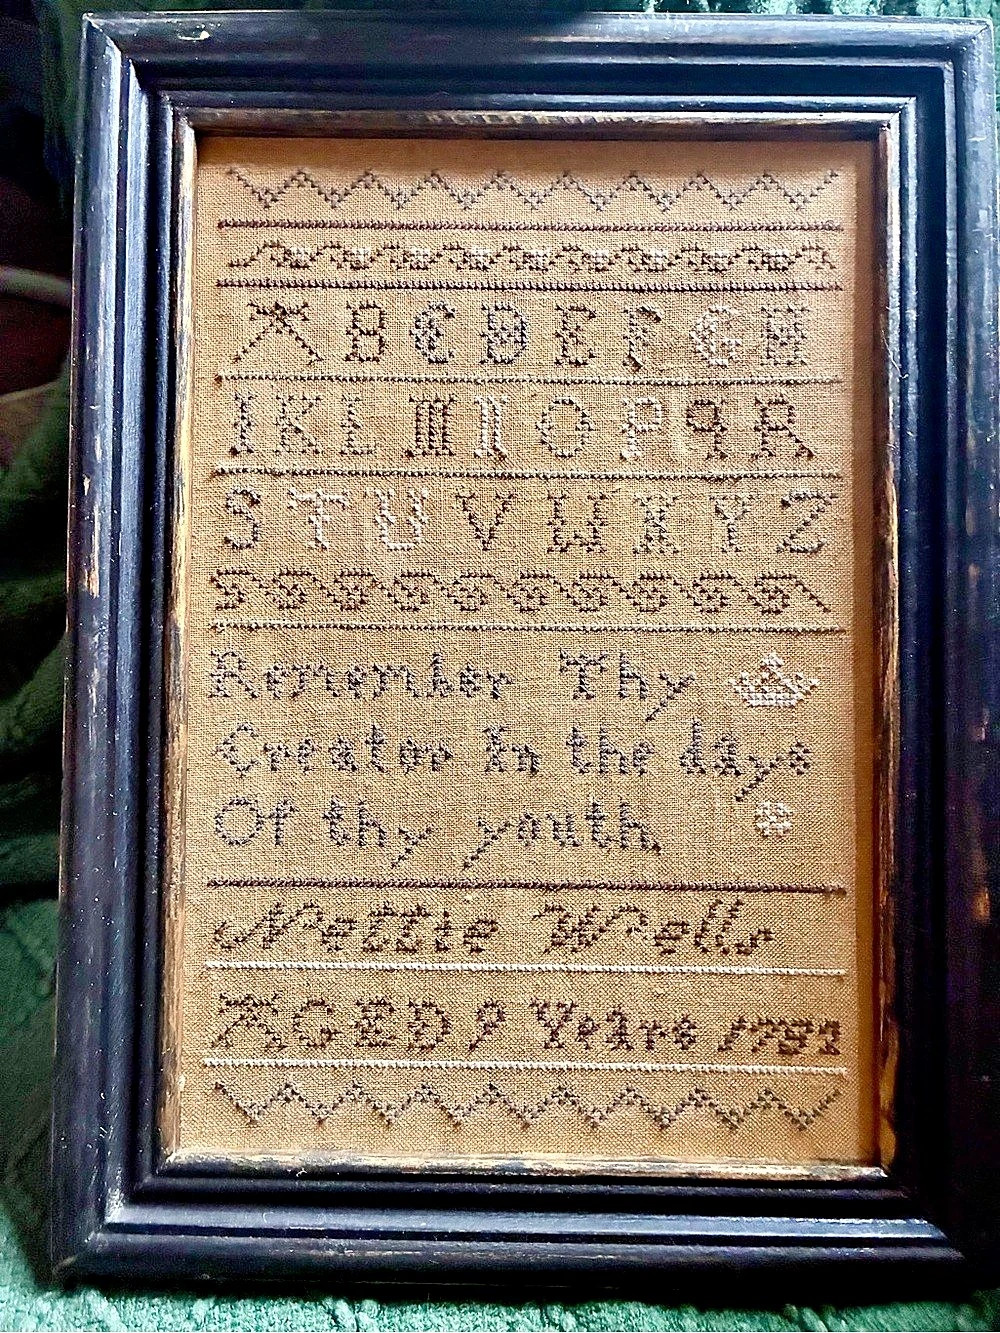 A B C D E F G H
I K L M N O P Q R
S T U V W X Y Z
Remember Thy
Creator In the days
Of thy youth
Nettie Wells
AGED 9 Years 1782